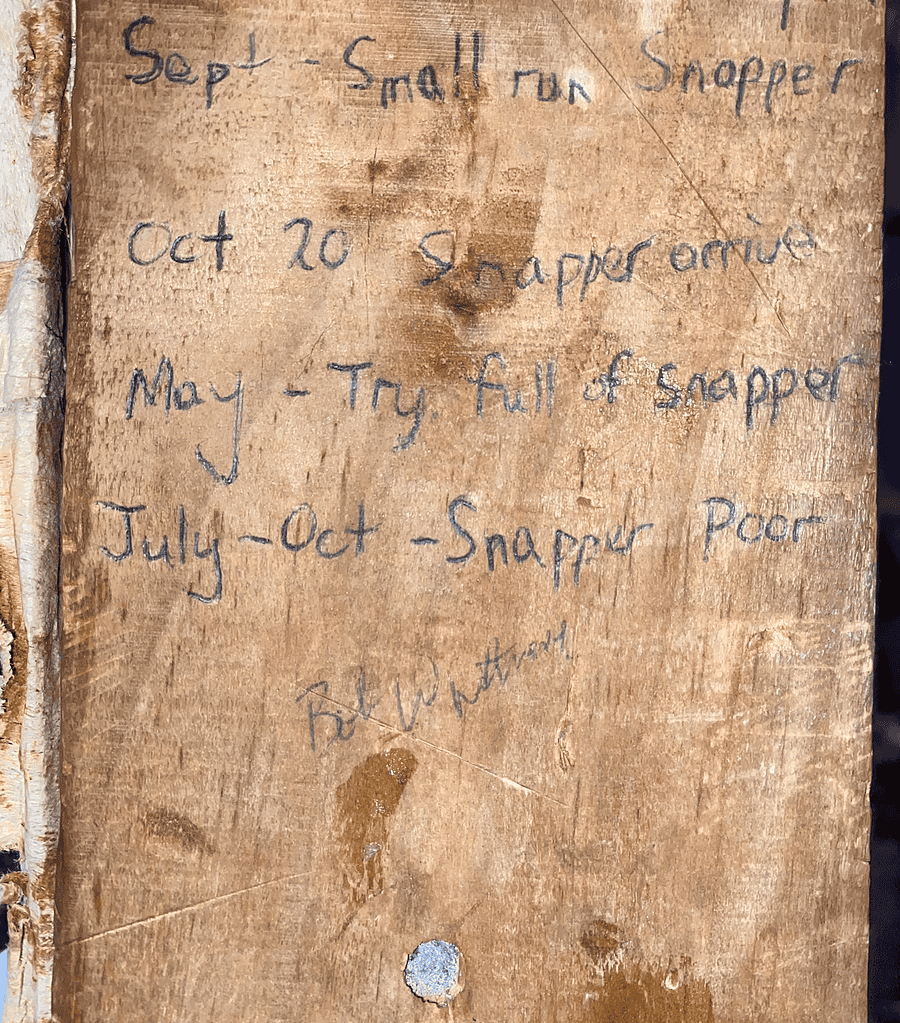 Sept - Small run Snapper
Oct 20 Snapper arrive
May - Try. full of snapper
July - Oct - Snapper Poor
Bob